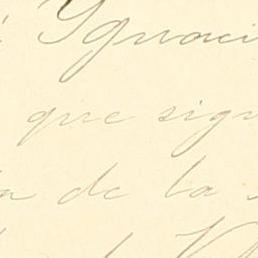 Ygnaci
que sigu
de la